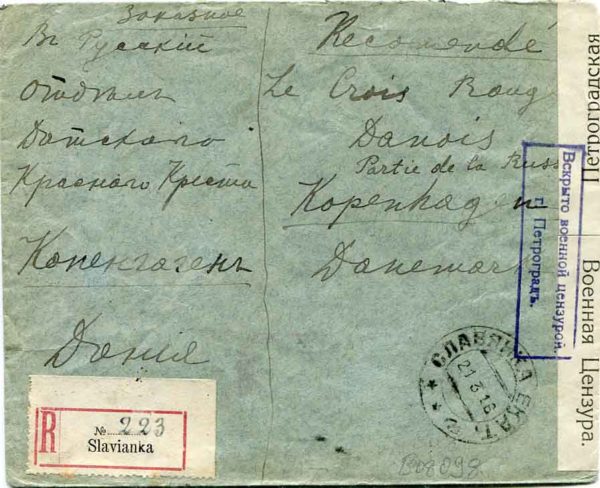 Заказное
Въ Русскій
Отдѣлъ
Датскаго
Краснаго Креста
Копенгагенъ
Данія
Recomendé
Le Crois Roug
Danois
Partie de la Russ
Kopenhagen
Danemark
R
№ 223
Slavianka
СЛАВЯНКА ЕКАТ.
21 3 16
Вскрыто военной цензурой.
г. Петроградъ.
Петроградская
Военная Цензура.